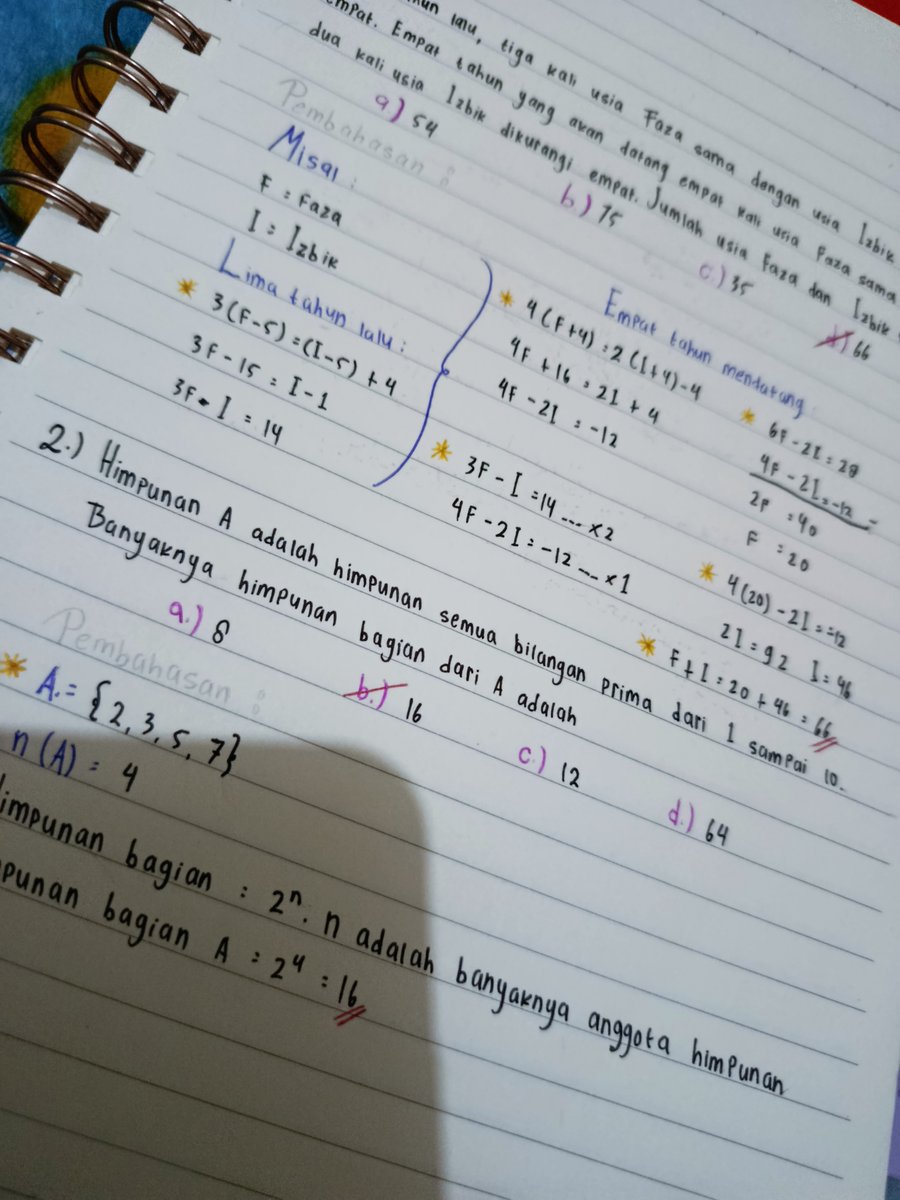 lalu, tiga kali usia Faza sama dengan usia Izbik
empat. Empat tahun yang akan datang empat kali usia Faza sama
dua kali usia Izbik dikurangi empat. Jumlah usia Faza dan Izbik
a) 54
b) 75
c) 35
d) 66
Pembahasan :
Misal :
F : Faza
I : Izbik
Lima tahun lalu :
3(F-5) = (I-5) + 4
3F - 15 = I - 1
3F - I = 14
Empat tahun mendatang :
4(F+4) = 2(I+4)-4
4F + 16 = 2I + 4
4F - 2I = -12
3F - I = 14 ... x2
4F - 2I = -12 ... x1
6F - 2I = 28
4F - 2I = -12 -
2F = 40
F = 20
4(20) - 2I = -12
2I = 92 I = 46
F + I = 20 + 46 = 66
2.) Himpunan A adalah himpunan semua bilangan prima dari 1 sampai 10.
Banyaknya himpunan bagian dari A adalah
a.) 8
b.) 16
c.) 12
d.) 64
Pembahasan :
A = {2, 3, 5, 7}
n (A) = 4
impunan bagian : 2ⁿ. n adalah banyaknya anggota himpunan
punan bagian A = 2⁴ = 16